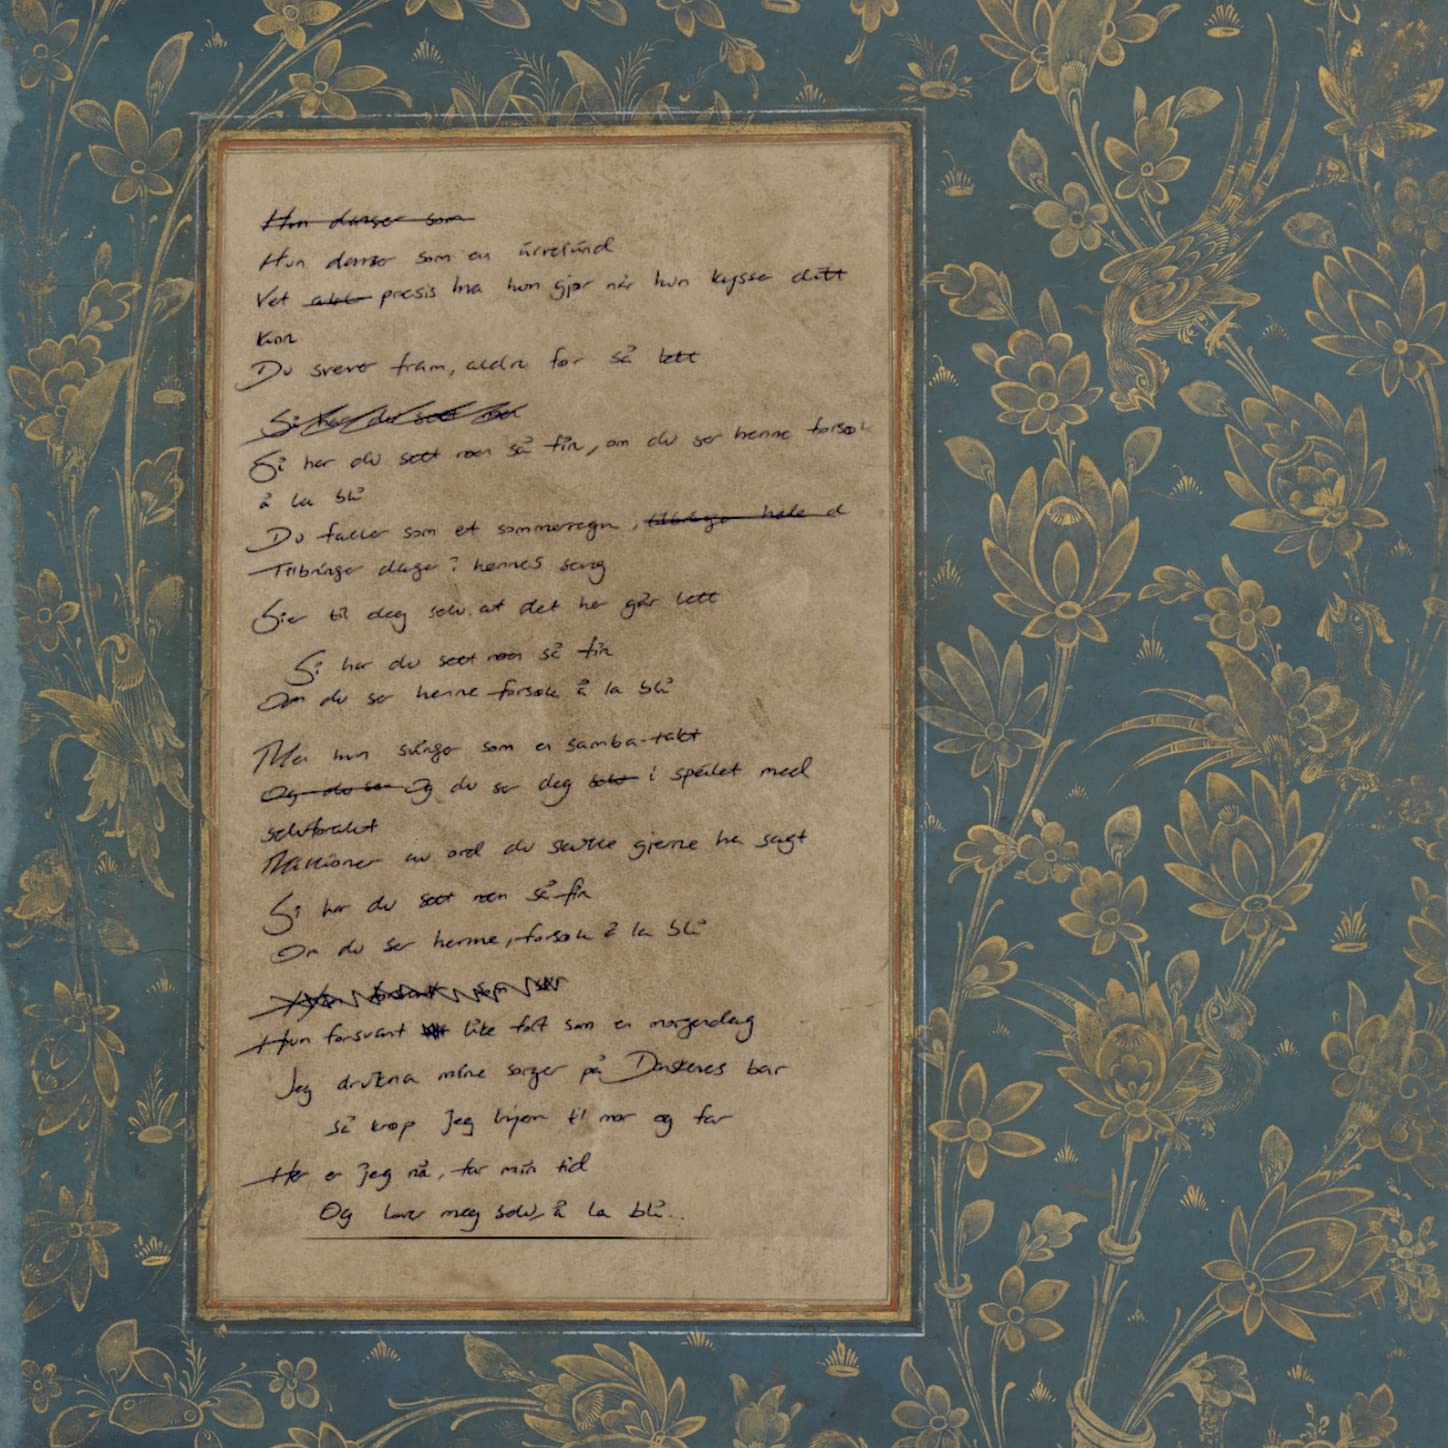 Hun danser som
Hun danser som en virvelvind
Vet alt presis hva hun gjør når hun kysser ditt
kinn
Du svever fram, aldri før så lett
Si har du sett noen
Si har du sett noen så fin, om du ser henne forsøk
å la bli
Du faller som et sommerregn, tilbringe hele d
Tilbringer dager i hennes seng
Sier til deg selv at det her går lett
Si har du sett noen så fin
Om du ser henne forsøk å la bli
Men hun svinger som en samba-takt
Og du ser Og du ser deg selv i speilet med
selvforakt
Millioner av ord du skulle gjerne ha sagt
Si har du sett noen så fin
Om du ser henne, forsøk å la bli
Hun forsvant like fort som en morgendag
Jeg drukna mine sorger på Danskenes bar
Så krøp jeg hjem til mor og far
Her er jeg nå, tar min tid
Og lover meg selv, å la bli..